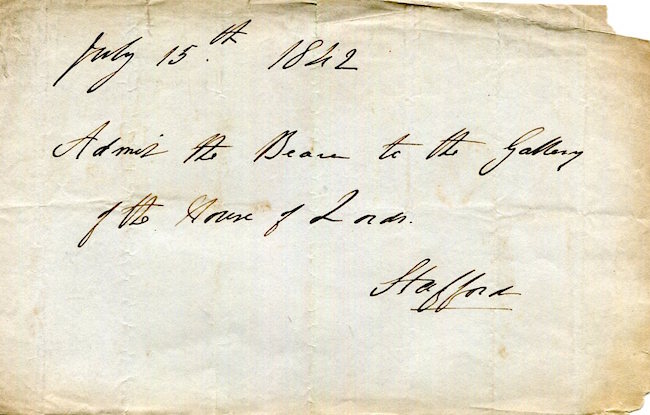 July 15.th 1842
Admit the Bearer to the Gallery
of the House of Lords.
Stafford